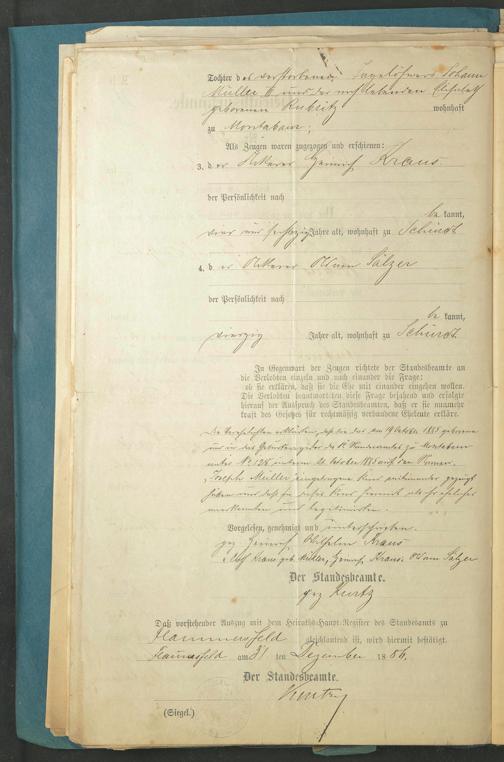 Tochter des verstorbenen Tagelöhners Johann
Müller II und der noch lebenden Elisabeth
geborenen wohnhaft
zu Montabaur.
Als Zeugen waren zugezogen und erschienen:
3. der Ackerer Heinrich Kraus
der Persönlichkeit nach
be kannt,
vier und sechszig Jahre alt, wohnhaft zu
4. d er Ackerer Adam Sälzer
der Persönlichkeit nach
be kannt,
vierzig Jahre alt, wohnhaft zu
In Gegenwart der Zeugen richtete der Standesbeamte an
die Verlobten einzeln und nach einander die Frage:
ob sie erklären, daß sie die Ehe mit einander eingehen wollen.
Die Verlobten beantworteten diese Frage bejahend und erfolgte
hierauf der Ausspruch des Standesbeamten, daß er sie nunmehr
kraft des Gesetzes für rechtmäßig verbundene Eheleute erkläre.
Die Eheschließenden erklärten, daß sie das am 19 Oktober 1885 geborene
und in das Geburtsregister des K. Standesamtes zu Montabaur
unter No 128 unterm 21 Oktober 1885 auf den Namen
"Joseph Müller" eingetragene Kind miteinander gezeugt
haben und daß sie dieses Kind hiermit als ihr eheliches
anerkennen und legitimiren.
Vorgelesen, genehmigt und unterschrieben.
gez Heinrich Wilhelm Kraus
Kraus geb. Müller, Heinrich Kraus. Adam Sälzer
Der Standesbeamte.
gez Kurtz
Daß vorstehender Auszug mit dem Heiraths-Haupt-Register des Standesamts zu
Flammersfeld gleichlautend ist, wird hiermit bestätigt.
Flammersfeld am 31 ten Dezember 1886.
Der Standesbeamte.
Kurtz
(Siegel.)